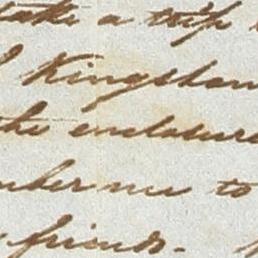 take a trip
Kingston
the enclosure
mber me to
friends.